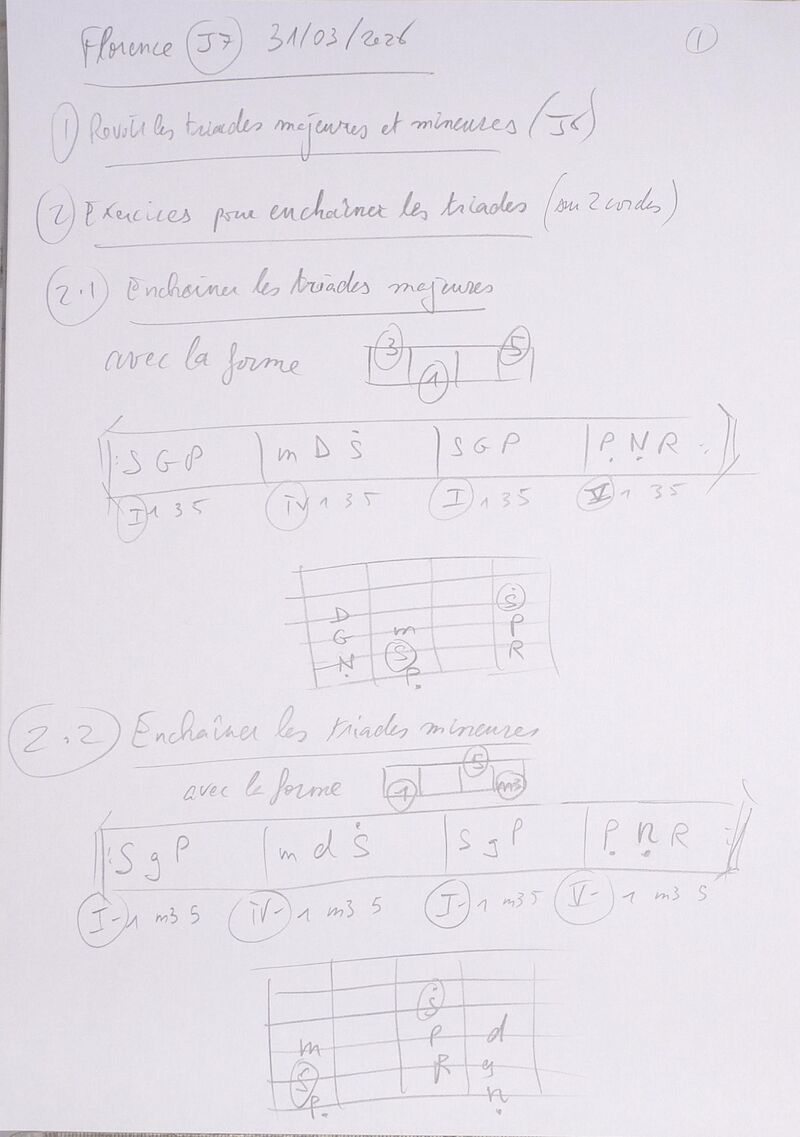 Florence J7 31/03/2026 1
1 Revoir les triades majeures et mineures (J6)
2 Exercices pour enchaîner les triades (sur 2 cordes)
2.1 Enchaîner les triades majeures
avec la forme 3 1 5
||: S G P | m Ḋ Ṡ | S G P | Ṗ Ṇ R :||
I 1 3 5 IV 1 3 5 I 1 3 5 V 1 3 5
Ṡ
D P
G m R
Ṇ S
P̣
2.2 Enchaîner les triades mineures
avec la forme 1 5 m3
||: S g P | m d Ṡ | S g P | P̣ ṇ R :||
I- 1 m3 5 IV- 1 m3 5 I- 1 m3 5 V- 1 m3 5
Ṡ
P d
m R g
S ṇ
P̣